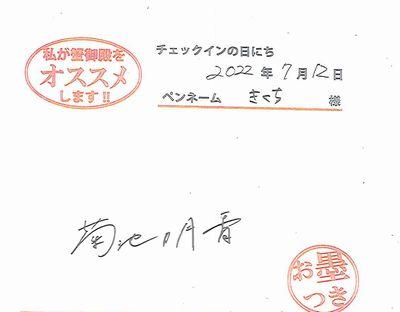 私が蟹御殿を
オススメ
します!!
チェックインの日にち
2022年7月12日
ペンネーム きくち 様
菊池明香
お墨
つき